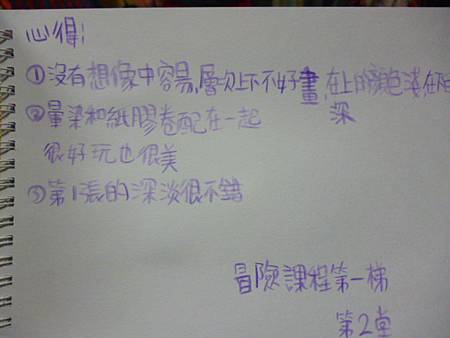 心得!
①沒有想像中容易,層次上下不好畫,在上的顏色淺在下
深
②暈染和紙膠卷配在一起
很好玩也很美
③第1張的深淡很不錯
冒險課程第一梯
第2堂